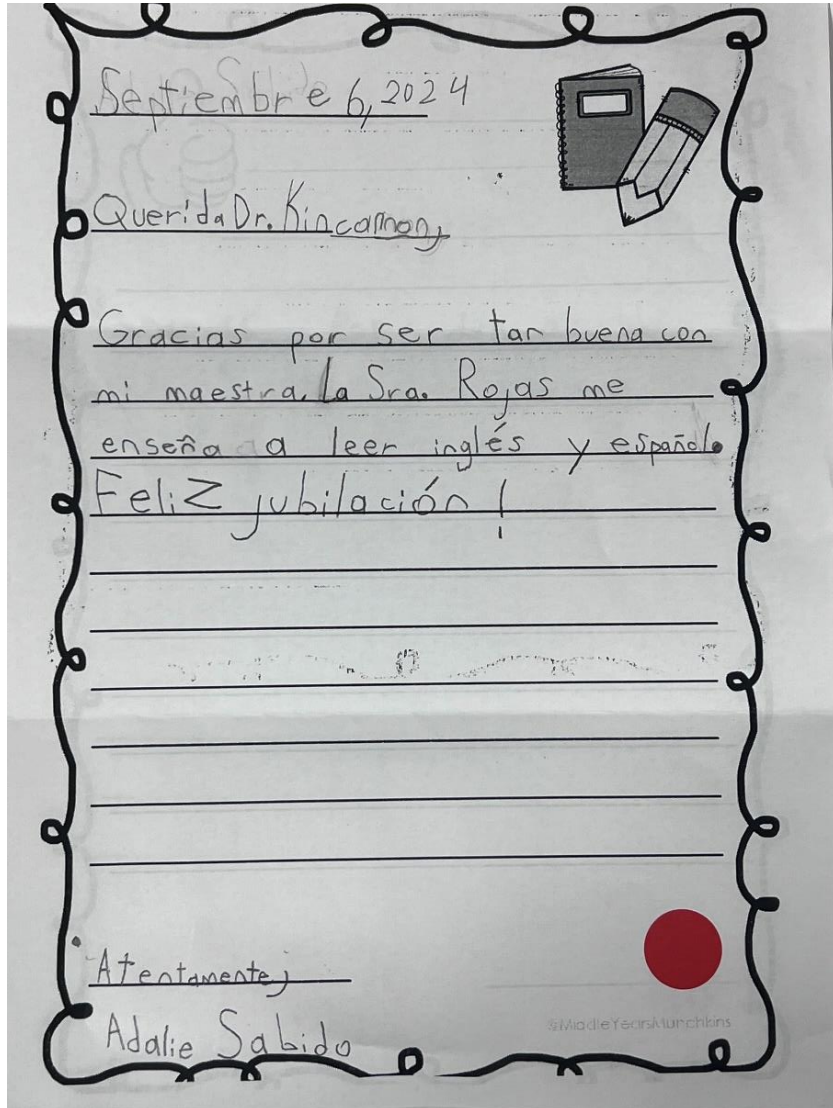 Septiembre 6, 2024
Querida Dr. Kincannon,
Gracias por ser tan buena con
mi maestra. La Sra. Rojas me
enseña a leer inglés y español.
Feliz jubilación!
Atentamente,
Adalie Sabido
©MiddleYearsMunchkins